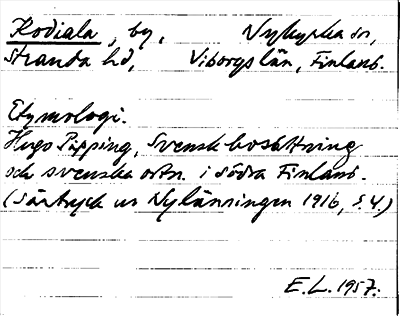 Kodiala, by, Nykyrka sn,
Stranda hd, Viborgs län, Finland.
Etymologi.
Hugo Pipping, Svensk bosättning
och svenska ortn. i södra Finland.
(Särtryck ur Nylänningen 1916, s. 4.)
E.L. 1957.